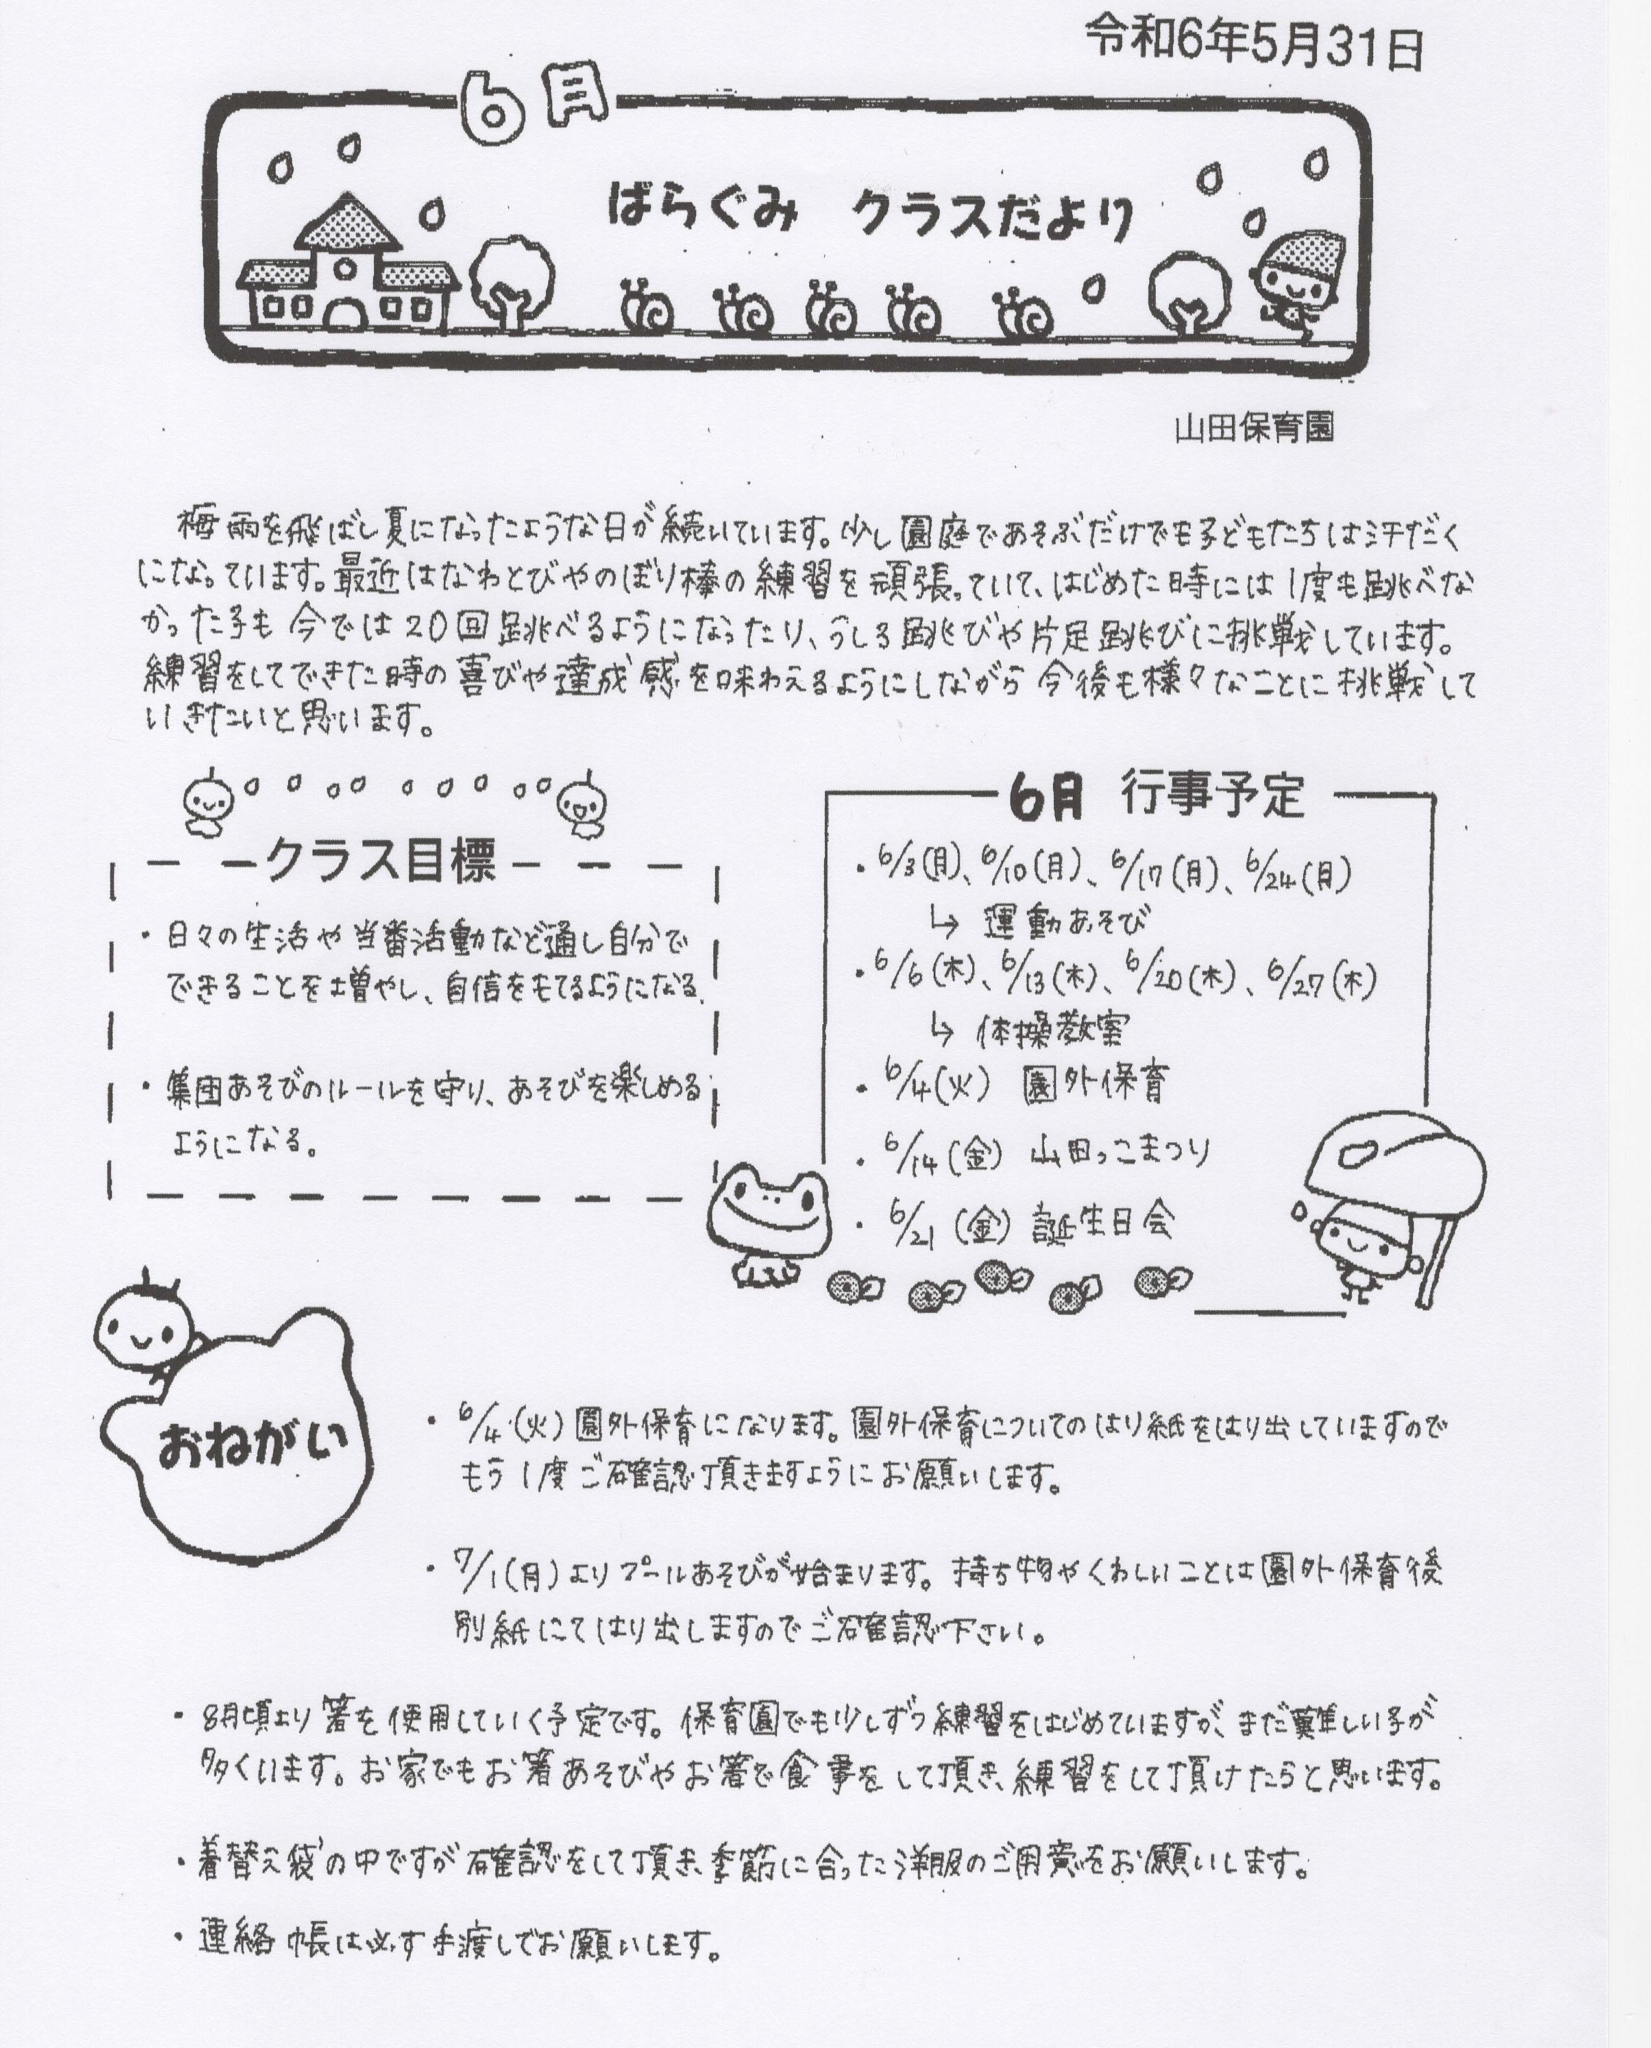 令和6年5月31日
6月
ばらぐみ　クラスだより
山田保育園
梅雨を飛ばし夏になったような日が続いています。少し園庭であそぶだけでも子どもたちは汗だく
になっています。最近はなわとびやのぼり棒の練習を頑張っていて、はじめた時には1度も跳べな
かった子も今では20回跳べるようになったり、うしろ跳びや片足跳びに挑戦しています。
練習をしてできた時の喜びや達成感を味わえるようにしながら今後も様々なことに挑戦して
いきたいと思います。
クラス目標
・日々の生活や当番活動など通し自分で
できることを増やし、自信をもてるようになる。
・集団あそびのルールを守り、あそびを楽しめる
ようになる。
6月 行事予定
・6/3(月)、6/10(月)、6/17(月)、6/24(月)
↳ 運動あそび
・6/6(木)、6/13(木)、6/20(木)、6/27(木)
↳ 体操教室
・6/4(火) 園外保育
・6/14(金) 山田っこまつり
・6/21(金) 誕生日会
おねがい
・6/4(火)園外保育になります。園外保育についてのはり紙をはり出していますので
もう1度ご確認頂きますようにお願いします。
・7/1(月)よりプールあそびが始まります。持ち物やくわしいことは園外保育後
別紙にてはり出しますのでご確認下さい。
・8月頃より箸を使用していく予定です。保育園でも少しずつ練習をはじめていますが、まだ難しい子が
多くいます。お家でもお箸あそびやお箸で食事をして頂き、練習をして頂けたらと思います。
・着替え袋の中ですが確認をして頂き、季節に合った洋服のご用意をお願いします。
・連絡帳は必ず手渡しでお願いします。